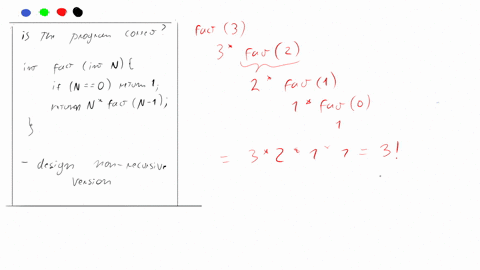 is the program correct?
int fact (int N) {
if (N==0) return 1;
return N * fact (N-1);
}
- design non-recursive
version
fact (3)
3 * fact (2)
2 * fact (1)
1 * fact (0)
1
= 3 * 2 * 1 * 1 = 3!